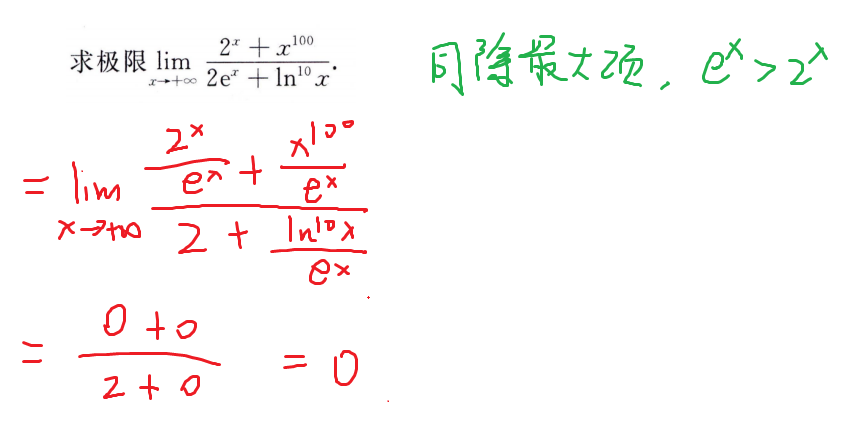 求极限 lim_{x→+∞} (2^x + x^100)/(2e^x + ln^10 x).
同除最大项, e^x > 2^x
= lim_{x→+∞} (2^x/e^x + x^100/e^x)/(2 + ln^10 x/e^x)
= (0+0)/(2+0) = 0